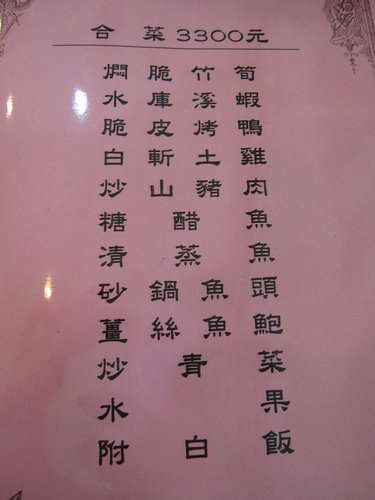 合菜3300元
燜脆竹筍
水庫溪蝦
脆皮烤鴨
白斬土雞
炒山豬肉
糖醋魚
清蒸魚
砂鍋魚頭
薑絲魚鮑
炒青菜
水果
附白飯